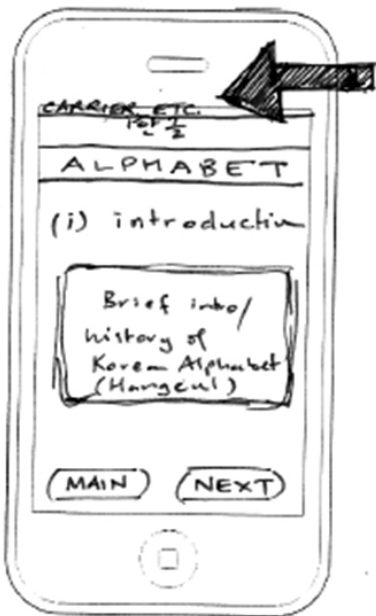 CARRIER ETC.
ALPHABET
(i) introduction
Brief intro/
history of
Korean Alphabet
(Hangeul)
MAIN
NEXT